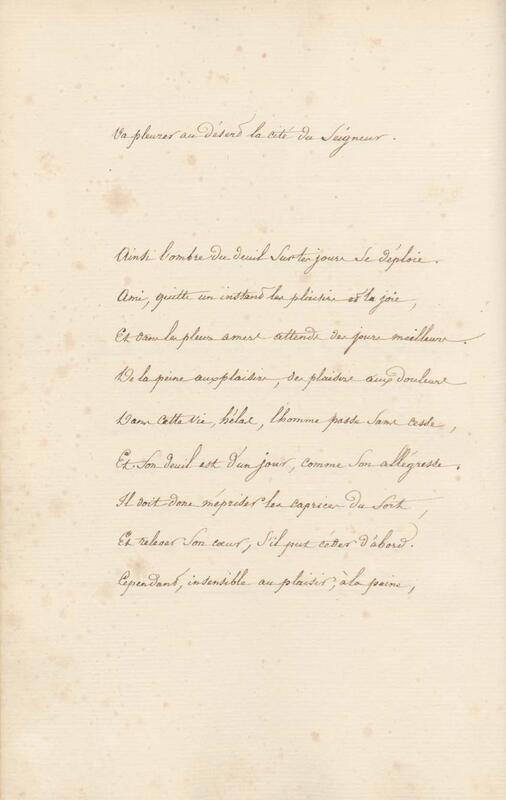 Va pleurer au désert la cité du Seigneur.
Ainsi l'ombre du deuil sur tes jours se déploie.
Ami, quitte un instant les plaisirs et la joie,
Et dans les pleurs amers attends des jours meilleurs.
De la peine aux plaisirs, des plaisirs aux douleurs
Dans cette vie, hélas, l'homme passe sans cesse,
Et son deuil est d'un jour, comme son allégresse.
Il doit donc mépriser les caprices du sort,
Et relever son cœur, s'il put céder d'abord.
Cependant, insensible au plaisir, à la peine,